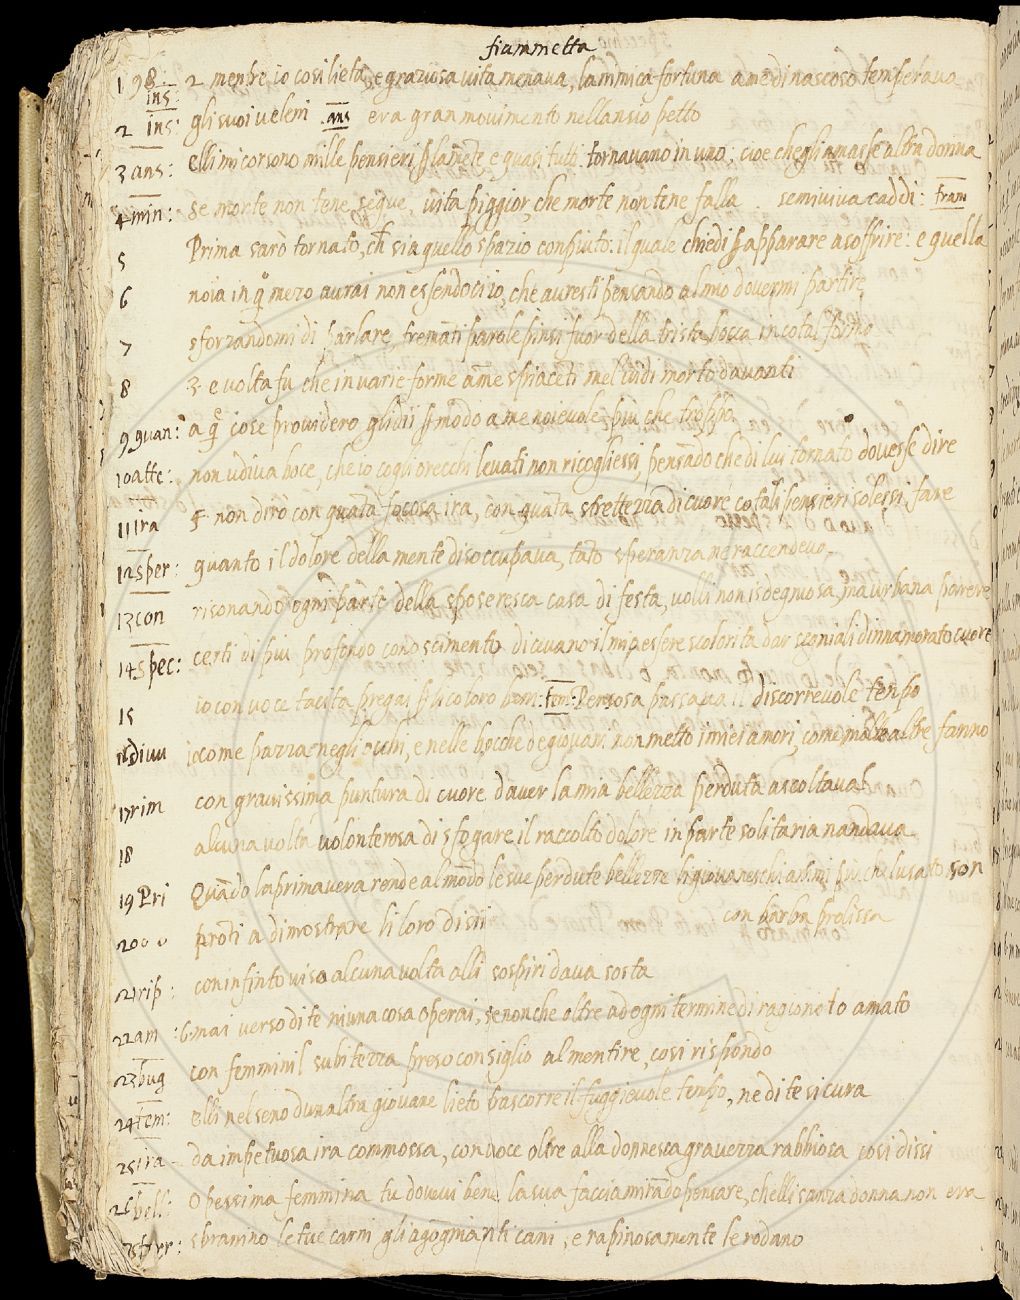 fiammetta
1 98 2 mentre io cosi lieta, e graziosa vita menava, la inimica fortuna a me di nascoso temperava
ins:
2 ins: gli suoi veleni ans era gran movimento nell ansio petto
3 ans: elli mi corsono mille pensieri p la mēte e quasi tutti tornavano in uno: cioe che egli amasse altra donna
4 min: se morte non tene segue, vita piggior, che morte non tene falla. semiviva caddi: tram
5 Prima sarò tornato, ch sia quello spazio compiuto: il quale chiedi p apparare a soffrire: e quella
6 noia in q mezo aurai non essendoci io, che auresti pensando al mio dovermi partire
7 sforzandomi di parlare, tremāti parole pinsi fuor della trista bocca in cotal forma
8 3 e volta fu che in varie forme a me spiacēti mel vidi morto davanti
9 quan: a q cose providero gl idii p modo a me noievole piu che troppo
10 atte: non udiva boce, che io cogli orecchi levati non ricogliessi, pensādo che di lui tornato dovesse dire
11 Ira 5 non dirò con quāta focosa ira, con quāta strettezza di cuore co tali pensieri solessi fare
12 sper: quanto il dolore della mente disoccupava, tāto speranza ne raccendeva
13 con risonando ogni parte della sposeresca casa di festa, volli non isdegnosa, ma urbana parere
14 spec: certi di piu profondo conoscimento dicevano il mio essere scolorita dar segniali d innamorato cuore
15 io con voce tacita pregai p li coloro beni: tem: Pensosa passava il discorrevole tempo
16 divu io come pazza negli occhi, e nelle bocche de giovani non metto i miei amori, come molte altre fanno
17 rim con gravissima puntura di cuore d aver la mia bellezza perduta ascoltava
18 alcuna volta volonterosa di sfogare il raccolto dolore in parte solitaria n andava
19 Pri Quādo la primavera rende al mōdo le sue perdute bellezze li giovaneschi animi piu che l usato son
20 prōti a dimostrare li loro disii con barba prolissa
21 rip: con infinto viso alcuna volta alli sospiri dava sosta
22 am: 6 mai verso di te niuna cosa operai, se non che oltre ad ogni termine di ragione to amato
23 bug con femminil subitezza preso consiglio al mentire, cosi rispondo
24 tem: elli nel seno d un altra giovane lieto trascorre il fuggievole tempo, ne di te si cura
25 ira da impetuosa ira commossa, con voce oltre alla donnesca gravezza rabbiosa cosi dissi
26 bell: O pessima femmina tu dovevi bene la sua faccia mirādo pensare, che elli sanza donna non era
sbranino le tue carni gli agognianti cani, e rapinosamente le rodano